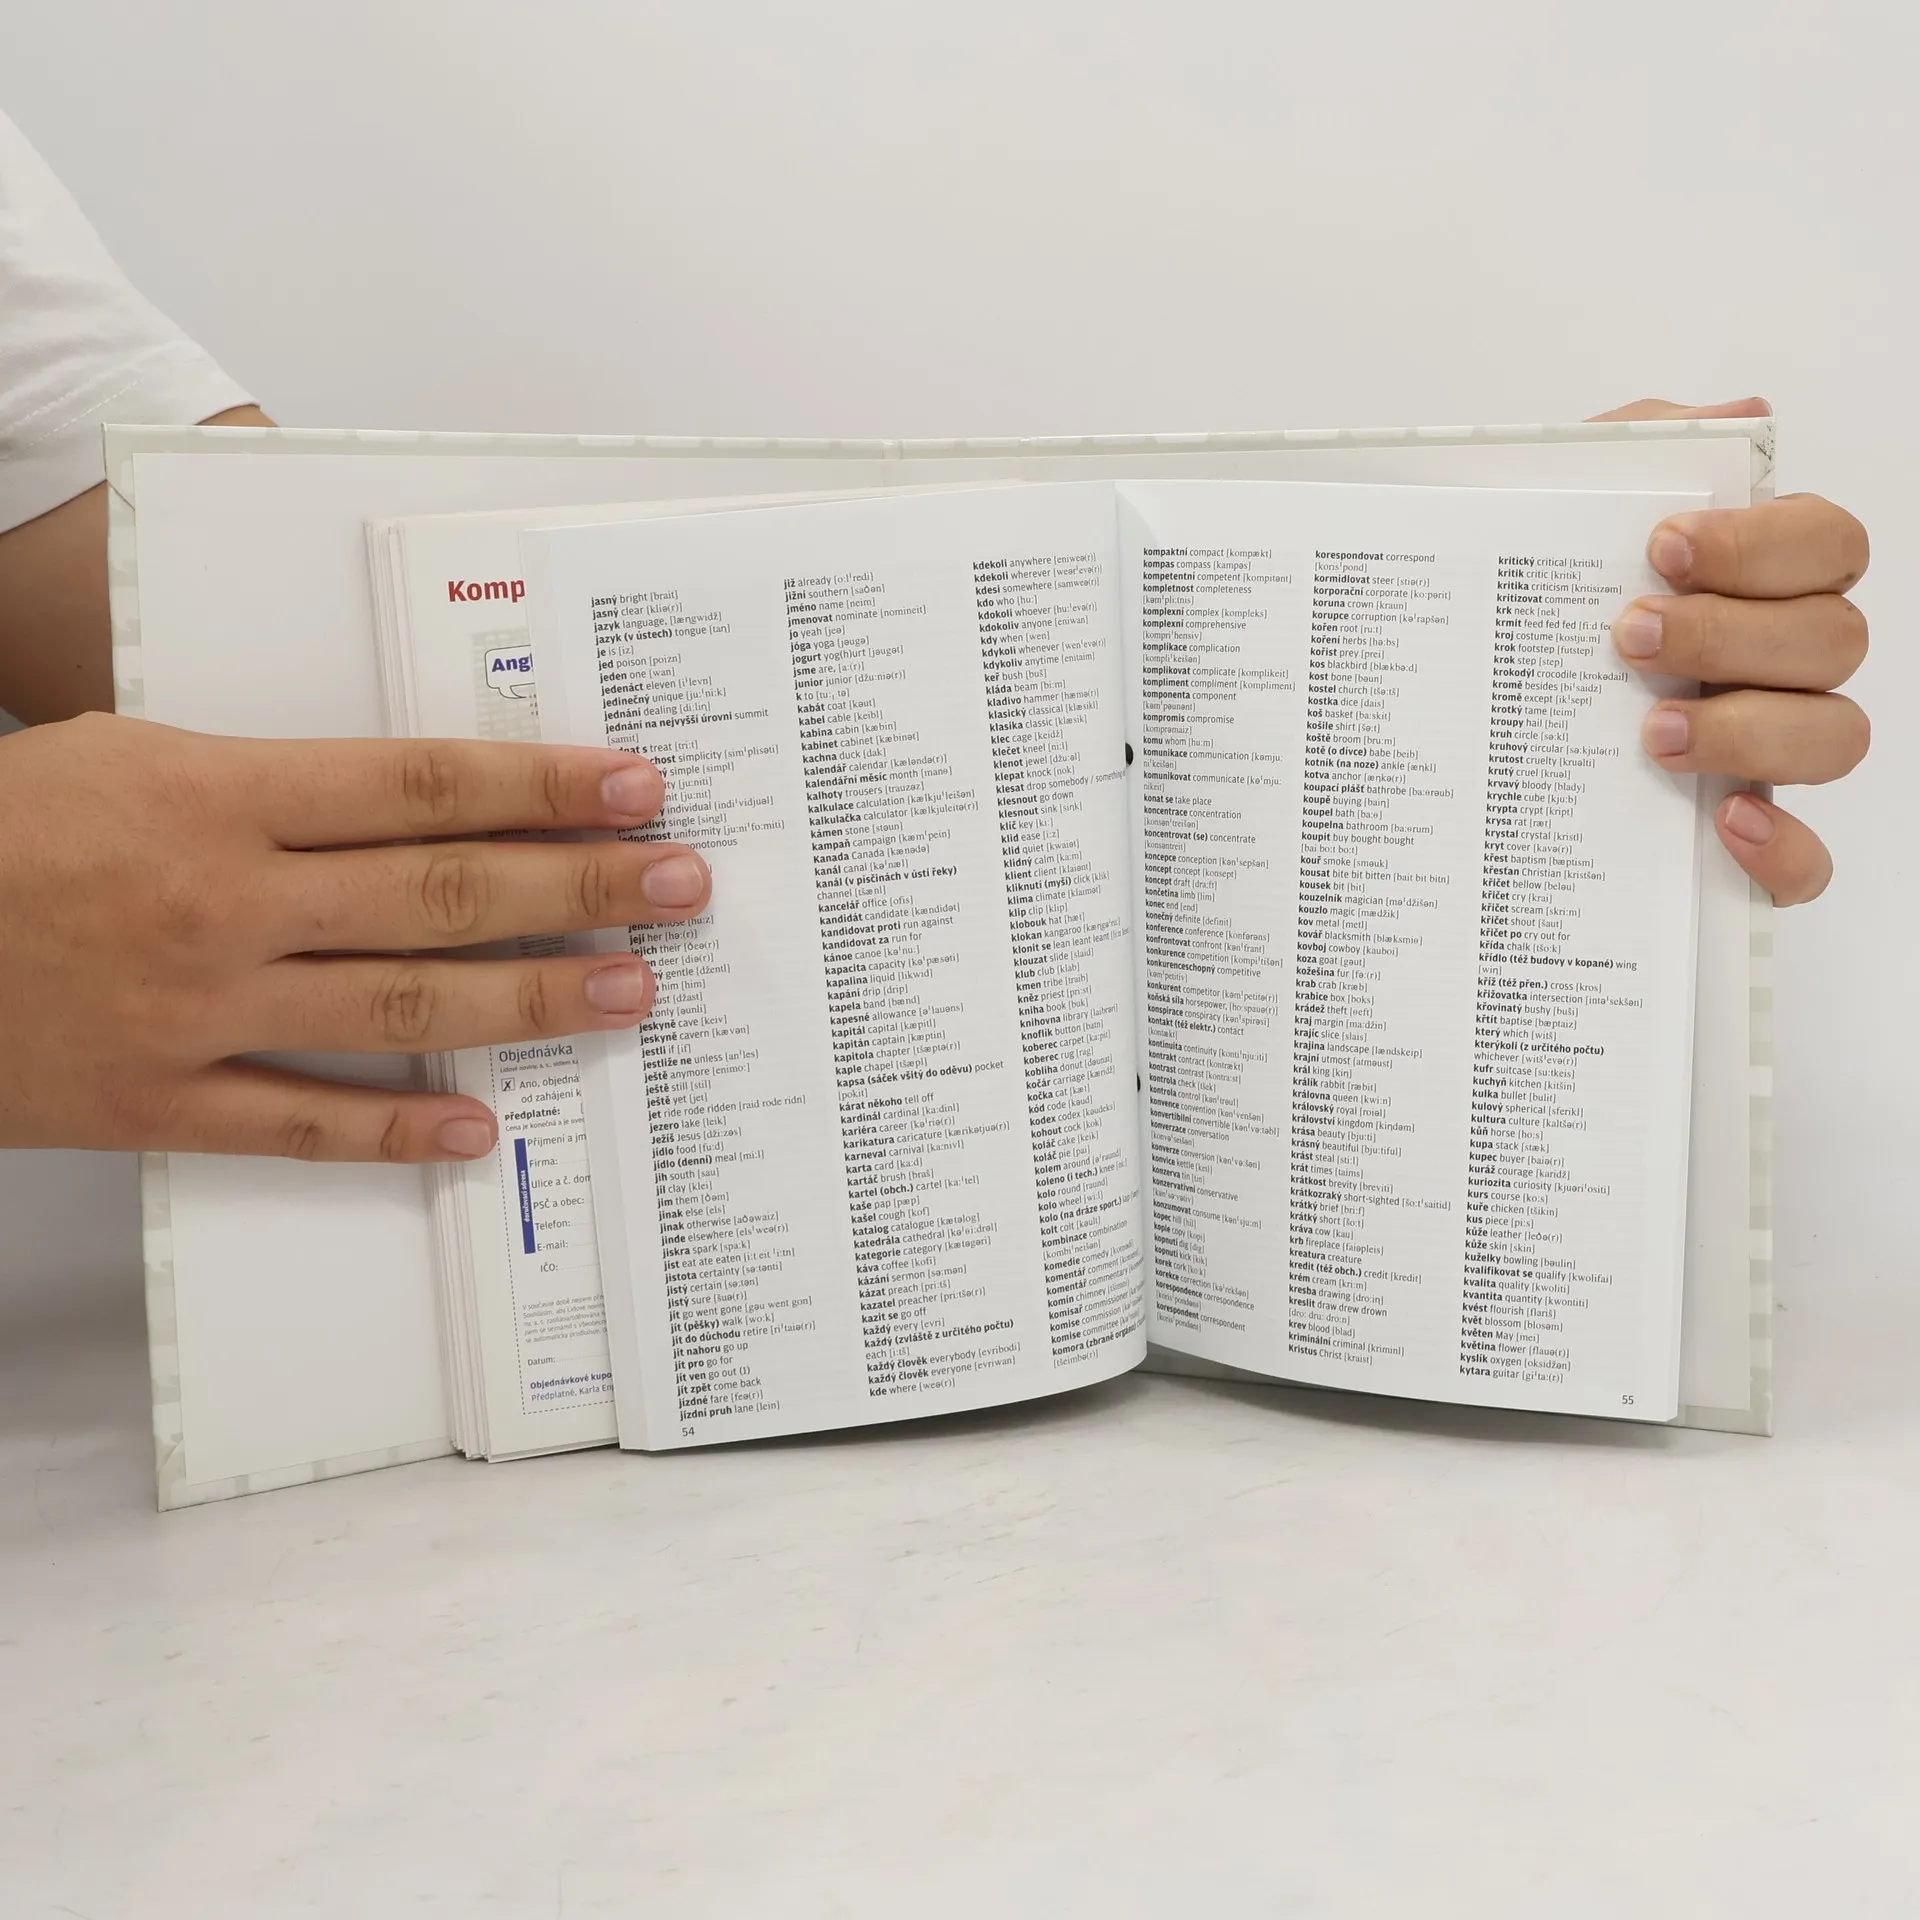 Komp
Angl
Objednávka
Ano, objedná
od zahájení k
Předplatné:
Příjmení a jm
Firma:
Ulice a č. dom
PSČ a obec:
Telefon:
E-mail:
IČO:
Datum:
Objednávkové kupo
Předplatné, Karla Eng
jasný bright [brait]
jasný clear [kliə(r)]
jazyk language, [læŋgwidž]
jazyk (v ústech) tongue [taŋ]
je is [iz]
jed poison [poizn]
jeden one [wan]
jedenáct eleven [iˈlevn]
jedinečný unique [ju:ˈni:k]
jednání dealing [di:liŋ]
jednání na nejvyšší úrovni summit
[samit]
treat [tri:t]
simplicity [simˈplisəti]
simple [simpl]
individual [indiˈvidjuəl]
single [siŋgl]
jednotnost uniformity [ju:niˈfo:miti]
její her [hə:(r)]
jejich their [ðeə(r)]
deer [diə(r)]
gentle [džentl]
him [him]
only [əunli]
jeskyně cave [keiv]
jeskyně cavern [kævən]
jestli if [if]
jestliže ne unless [anˈles]
ještě anymore [enimo:]
ještě still [stil]
ještě yet [jet]
jet ride rode ridden [raid rəde ridn]
jezero lake [leik]
Ježíš Jesus [dži:zəs]
jídlo food [fu:d]
jídlo (denní) meal [mi:l]
jih south [sau]
jíl clay [klei]
jim them [ðəm]
jinak else [els]
jinak otherwise [aðəwaiz]
jinde elsewhere [elsˈweə(r)]
jiskra spark [spa:k]
jíst eat ate eaten [i:t eit ˈi:tn]
jistota certainty [sə:tənti]
jistý certain [sə:tən]
jistý sure [šuə(r)]
jít go went gone [gəu went gon]
jít (pěšky) walk [wo:k]
jít do důchodu retire [riˈtaiə(r)]
jít nahoru go up
jít pro go for
jít ven go out (1)
jít zpět come back
jízdné fare [feə(r)]
jízdní pruh lane [lein]
54
již already [o:lˈredi]
jižní southern [saðən]
jméno name [neim]
jmenovat nominate [nomineit]
jo yeah [jeə]
jóga yoga [jəugə]
jogurt yog(h)urt [jəugət]
jsme are, [a:(r)]
junior junior [džu:niə(r)]
k to [tu:, tə]
kabát coat [kəut]
kabel cable [keibl]
kabina cabin [kæbin]
kabinet cabinet [kæbinət]
kachna duck [dak]
kalendář calendar [kæləndə(r)]
kalendářní měsíc month [manθ]
kalhoty trousers [trauzəz]
kalkulace calculation [kælkjuˈleišən]
kalkulačka calculator [kælkjuleitə(r)]
kámen stone [stəun]
kampaň campaign [kæmˈpein]
Kanada Canada [kænədə]
kanál canal [kəˈnæl]
kanál (v písčinách v ústí řeky)
channel [tšænl]
kancelář office [ofis]
kandidát candidate [kændidət]
kandidovat proti run against
kandidovat za run for
kánoe canoe [kəˈnu:]
kapacita capacity [kəˈpæsəti]
kapalina liquid [likwid]
kapání drip [drip]
kapela band [bænd]
kapesné allowance [əˈlauəns]
kapitál capital [kæpitl]
kapitán captain [kæptin]
kapitola chapter [tšæptə(r)]
kaple chapel [tšæpl]
kapsa (sáček všitý do oděvu) pocket
[pokit]
kárat někoho tell off
kardinál cardinal [ka:dinl]
kariéra career [kəˈriə(r)]
karikatura caricature [kærikətjuə(r)]
karneval carnival [ka:nivl]
karta card [ka:d]
kartáč brush [braš]
kartel (obch.) cartel [ka:ˈtel]
kaše pap [pæp]
kašel cough [kof]
katalog catalogue [kætəlog]
katedrála cathedral [kəˈθi:drəl]
kategorie category [kætəgəri]
káva coffee [kofi]
kázání sermon [sə:mən]
kázat preach [pri:tš]
kazatel preacher [pri:tšə(r)]
kazit se go off
každý every [evri]
každý (zvláště z určitého počtu)
each [i:tš]
každý člověk everybody [evribodi]
každý člověk everyone [evriwan]
kde where [weə(r)]
kdekoli anywhere [eniweə(r)]
kdekoli wherever [weərˈevə(r)]
kdesi somewhere [samweə(r)]
kdo who [hu:]
kdokoli whoever [hu:ˈevə(r)]
kdokoliv anyone [eniwan]
kdy when [wen]
kdykoli whenever [wenˈevə(r)]
kdykoliv anytime [enitaim]
keř bush [buš]
kláda beam [bi:m]
kladivo hammer [hæmə(r)]
klasický classical [klæsikl]
klasika classic [klæsik]
klec cage [keidž]
klečet kneel [ni:l]
klenot jewel [džu:əl]
klepat knock [nok]
klesat drop somebody / something
klesnout go down
klesnout sink [siŋk]
klíč key [ki:]
klid ease [i:z]
klid quiet [kwaiət]
klidný calm [ka:m]
klient client [klaiənt]
kliknutí (myši) click [klik]
klima climate [klaimət]
klip clip [klip]
klobouk hat [hæt]
klokan kangaroo
klonit se lean leant leant
klouzat slide [slaid]
klub club [klab]
kmen tribe [traib]
kněz priest [pri:st]
kniha book [buk]
knihovna library [laibrəri]
knoflík button [batn]
koberec carpet [ka:pit]
koberec rug [rag]
kobliha donut [dəunat]
kočár carriage [kæridž]
kočka cat [kæt]
kód code [kəud]
kodex codex [kəudeks]
kohout cock [kok]
koláč cake [keik]
koláč pie [pai]
kolem around [əˈraund]
koleno (i tech.) knee [ni:]
kolo round [raund]
kolo wheel [wi:l]
kolo (na dráze sport.) lap
kolt colt [kəult]
kombinace combination
[kombiˈneišən]
komedie comedy
komentář comment
komentář commentary
komín chimney [tšimni]
komisař commissioner
komise commission
komise committee
komora (zbraně orgánu)
[tšeimbə(r)]
kompaktní compact [kompækt]
kompas compass [kampəs]
kompetentní competent [kompitənt]
kompletnost completeness
[kəmˈpli:tnis]
komplexní complex [kompleks]
komplexní comprehensive
[kompriˈhensiv]
komplikace complication
[kompliˈkeišən]
komplikovat complicate [komplikeit]
kompliment compliment [kompliment]
komponenta component
[kəmˈpəunənt]
kompromis compromise
[komprəmaiz]
komu whom [hu:m]
komunikace communication [kəmju:
niˈkeišən]
komunikovat communicate [kəˈmju:
nikeit]
konat se take place
koncentrace concentration
[konsənˈtreišən]
koncentrovat (se) concentrate
[konsəntreit]
koncepce conception [kənˈsepšən]
koncept concept [konsept]
koncept draft [dra:ft]
končetina limb [lim]
konec end [end]
konečný definite [definit]
konference conference [konfərəns]
konfrontovat confront [kənˈfrant]
konkurence competition [kompiˈtišən]
konkurenceschopný competitive
[kəmˈpetitiv]
konkurent competitor [kəmˈpetitə(r)]
koňská síla horsepower, [ho:spauə(r)]
konspirace conspiracy [kənˈspirəsi]
kontakt (též elektr.) contact
[kontækt]
kontinuita continuity [kontiˈnju:iti]
kontrakt contract [kontrækt]
kontrast contrast [kontra:st]
kontrola check [tšek]
kontrola control [kənˈtrəul]
konvence convention [kənˈvenšən]
konvertibilní convertible [kənˈvə:təbl]
konverzace conversation
[konvəˈseišən]
konverze conversion [kənˈvə:šən]
konvice kettle [ketl]
konzerva tin [tin]
konzervativní conservative
[kənˈsə:vətiv]
konzumovat consume [kənˈsju:m]
kopec hill [hil]
kopie copy [kopi]
kopnutí dig [dig]
kopnutí kick [kik]
korek cork [ko:k]
korekce correction [kəˈrekšən]
korespondence correspondence
[korisˈpondəns]
korespondent correspondent
[korisˈpondənt]
korespondovat correspond
[korisˈpond]
kormidlovat steer [stiə(r)]
korporační corporate [ko:pərit]
koruna crown [kraun]
korupce corruption [kəˈrapšən]
kořen root [ru:t]
koření herbs [hə:bs]
kořist prey [prei]
kos blackbird [blækbə:d]
kost bone [bəun]
kostel church [tšə:tš]
kostka dice [dais]
koš basket [ba:skit]
košile shirt [šə:t]
koště broom [bru:m]
kotě (o dívce) babe [beib]
kotník (na noze) ankle [æŋkl]
kotva anchor [æŋkə(r)]
koupací plášť bathrobe [ba:θrəub]
koupě buying [baiŋ]
koupel bath [ba:θ]
koupelna bathroom [ba:θrum]
koupit buy bought bought
[bai bo:t bo:t]
kouř smoke [sməuk]
kousat bite bit bitten [bait bit bitn]
kousek bit [bit]
kouzelník magician [məˈdžišən]
kouzlo magic [mædžik]
kov metal [metl]
kovář blacksmith [blæksmiθ]
kovboj cowboy [kauboi]
koza goat [gəut]
kožešina fur [fə:(r)]
krab crab [kræb]
krabice box [boks]
krádež theft [θeft]
kraj margin [ma:džin]
krajíc slice [slais]
krajina landscape [lændskeip]
krajní utmost [atməust]
král king [kiŋ]
králík rabbit [ræbit]
královna queen [kwi:n]
královský royal [roiəl]
království kingdom [kiŋdəm]
krása beauty [bju:ti]
krásný beautiful [bju:tiful]
krást steal [sti:l]
krát times [taims]
krátkost brevity [breviti]
krátkozraký short-sighted [šo:tˈsaitid]
krátký brief [bri:f]
krátký short [šo:t]
kráva cow [kau]
krb fireplace [faiəpleis]
kreatura creature
kredit (též obch.) credit [kredit]
krém cream [kri:m]
kresba drawing [dro:iŋ]
kreslit draw drew drown
[dro: dru: dro:n]
krev blood [blad]
kriminální criminal [kriminl]
Kristus Christ [kraist]
kritický critical [kritikl]
kritik critic [kritik]
kritika criticism [kritisizəm]
kritizovat comment on
krk neck [nek]
krmit feed fed fed [fi:d fed
kroj costume [kostju:m]
krok footstep [futstep]
krok step [step]
krokodýl crocodile [krokədail]
kromě besides [biˈsaidz]
kromě except [ikˈsept]
krotký tame [teim]
kroupy hail [heil]
kruh circle [sə:kl]
kruhový circular [sə:kjulə(r)]
krutost cruelty [kruəlti]
krutý cruel [kruəl]
krvavý bloody [blady]
krychle cube [kju:b]
krypta crypt [kript]
krysa rat [ræt]
krystal crystal [kristl]
kryt cover [kavə(r)]
křest baptism [bæptism]
křesťan Christian [kristšən]
křičet bellow [beləu]
křičet cry [krai]
křičet scream [skri:m]
křičet shout [šaut]
křičet po cry out for
křída chalk [tšo:k]
křídlo (též budovy v kopané) wing
[wiŋ]
kříž (též přen.) cross [kros]
křižovatka intersection [intəˈsekšən]
křovinatý bushy [buši]
křtít baptise [bæptaiz]
který which [witš]
kterýkoli (z určitého počtu)
whichever [witšˈevə(r)]
kufr suitcase [su:tkeis]
kuchyň kitchen [kitšin]
kulka bullet [bulit]
kulový spherical [sferikl]
kultura culture [kaltšə(r)]
kůň horse [ho:s]
kupa stack [stæk]
kupec buyer [baiə(r)]
kuráž courage [karidž]
kuriozita curiosity [kjuəriˈositi]
kurs course [ko:s]
kuře chicken [tšikin]
kus piece [pi:s]
kůže leather [leðə(r)]
kůže skin [skin]
kuželky bowling [bəuliŋ]
kvalifikovat se qualify [kwolifai]
kvalita quality [kwoliti]
kvantita quantity [kwontiti]
kvést flourish [flariš]
květ blossom [blosəm]
květen May [mei]
květina flower [flauə(r)]
kyslík oxygen [oksidžən]
kytara guitar [giˈta:(r)]
55